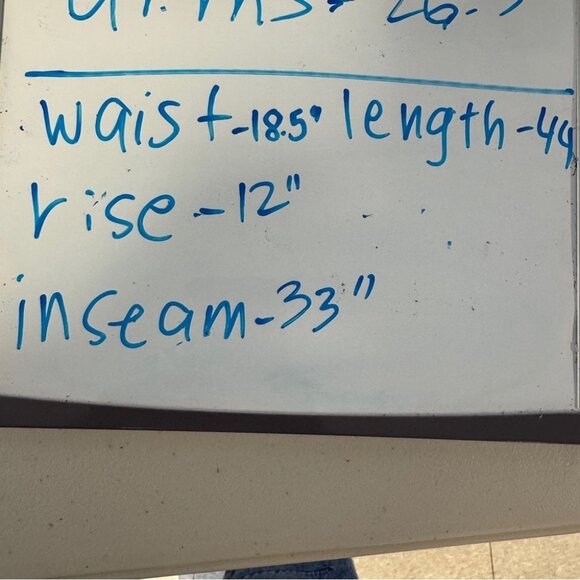 waist-18.5" length-44
rise-12"
inseam-33"